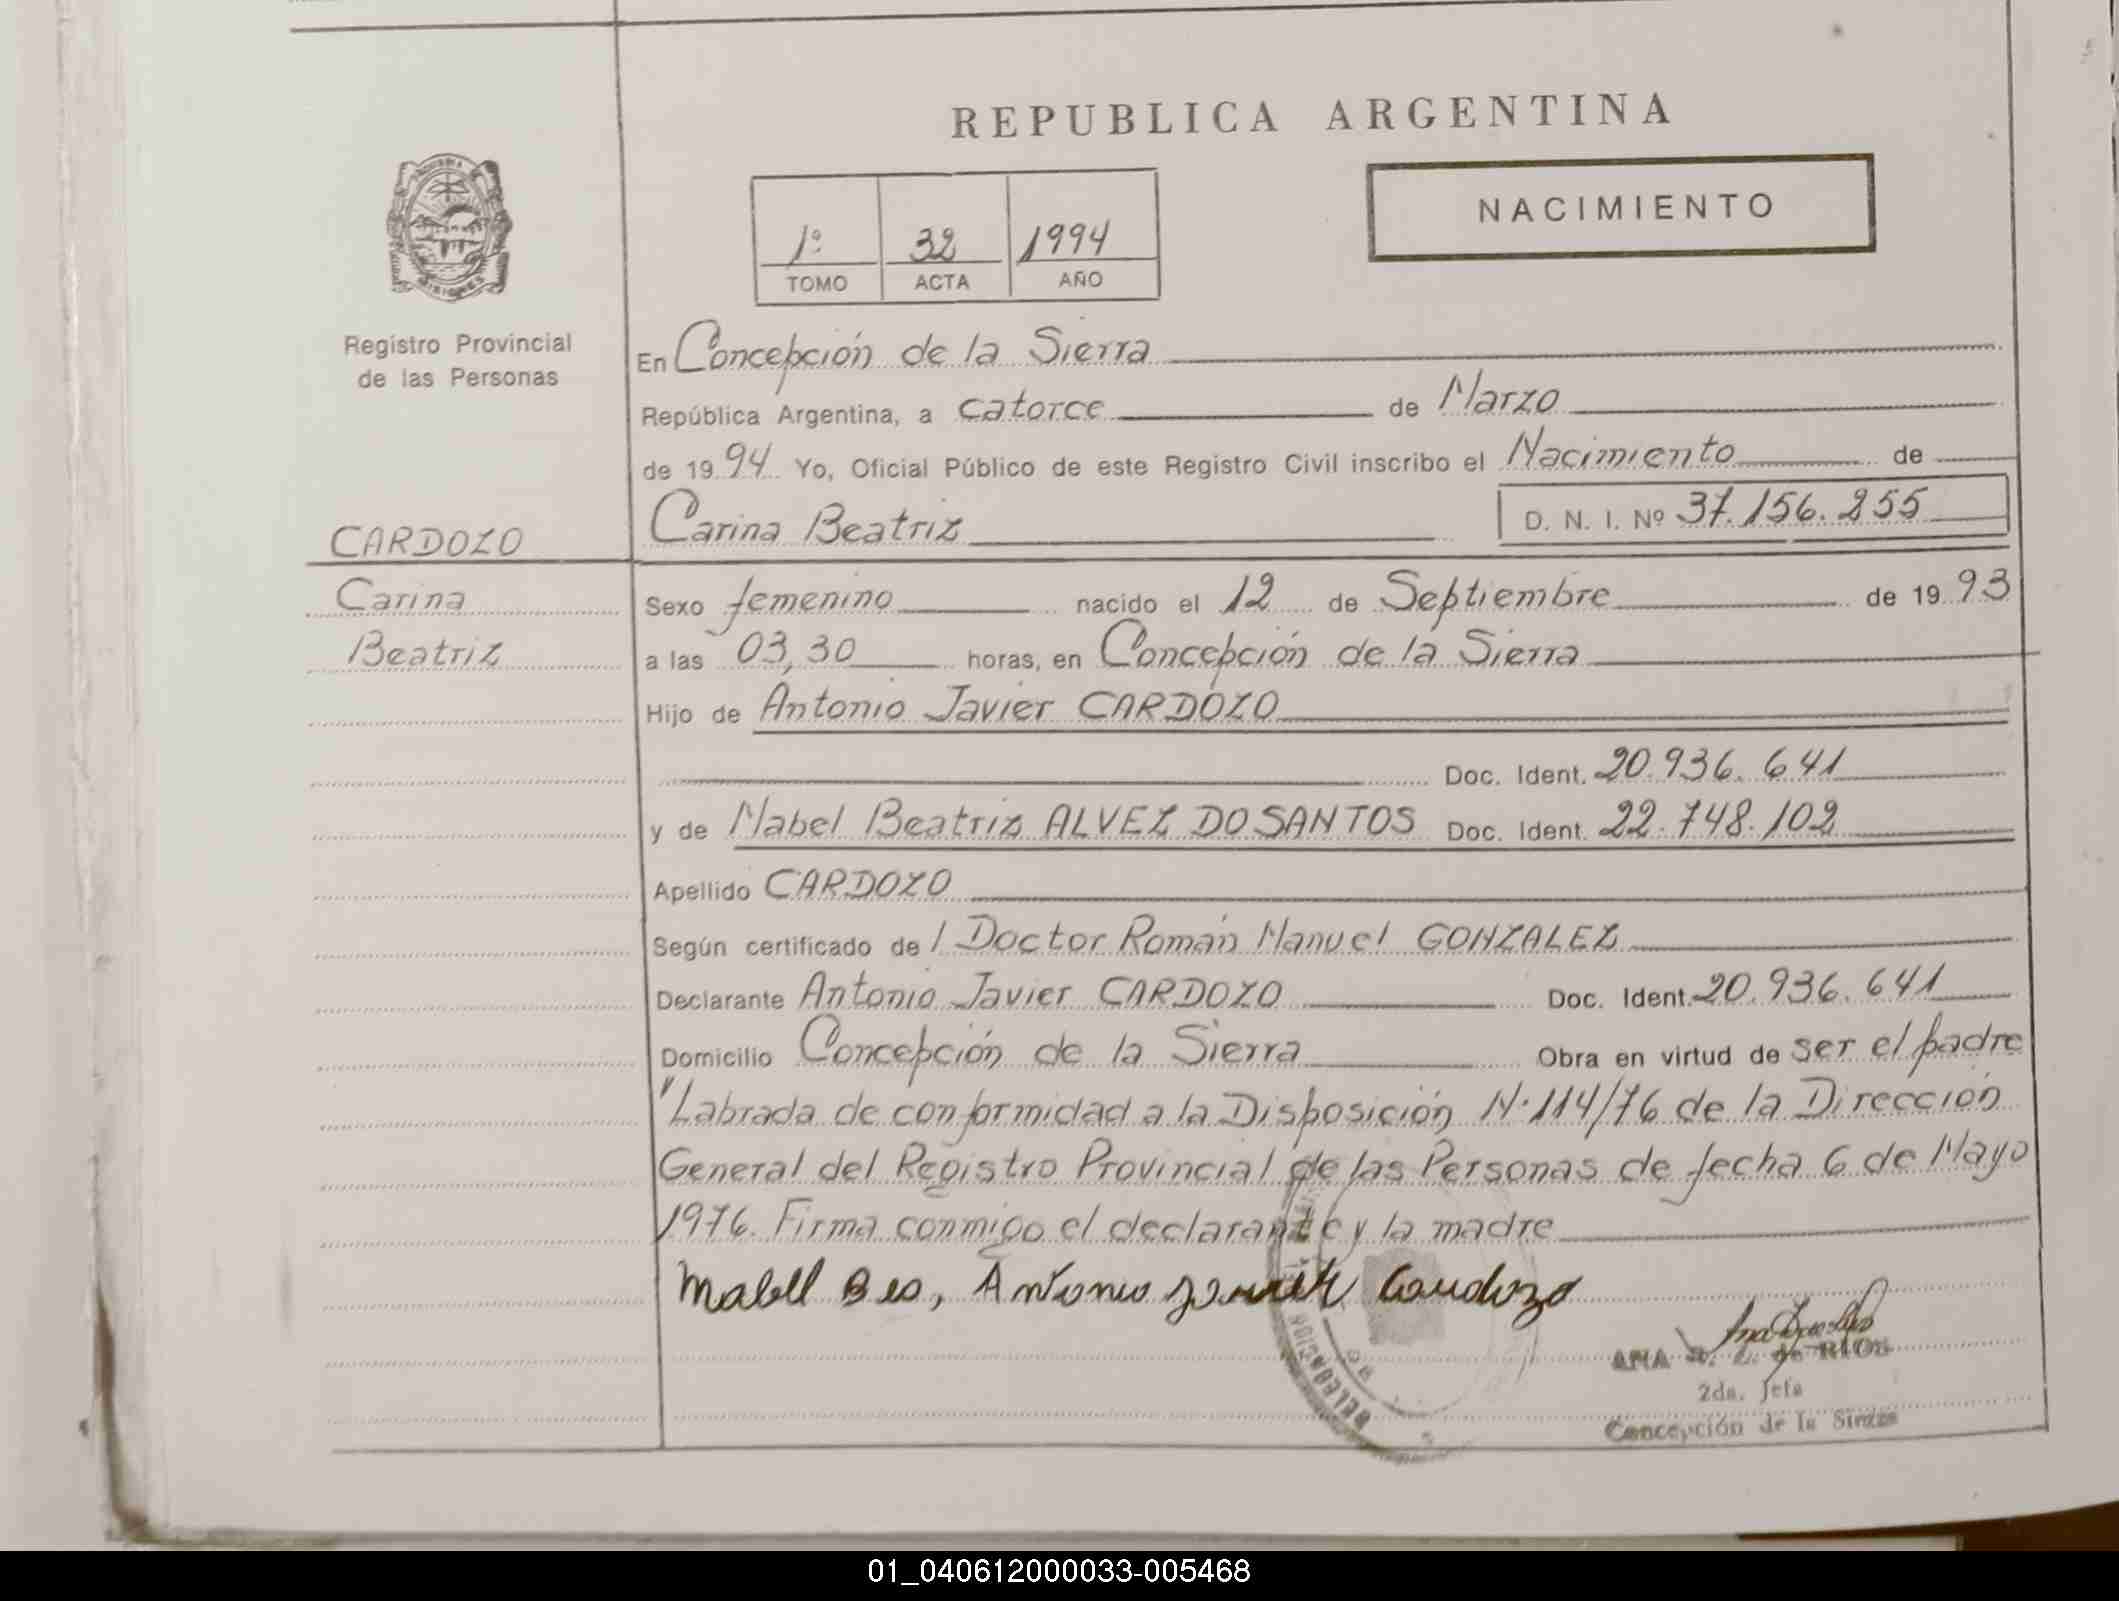 REPUBLICA ARGENTINA
NACIMIENTO
1º 32 1994
TOMO ACTA AÑO
Registro Provincial
de las Personas
En Concepción de la Sierra
República Argentina, a catorce de Marzo
de 1994 Yo, Oficial Público de este Registro Civil inscribo el Nacimiento de
Carina Beatriz D. N. I. Nº 37.156.255
CARDOZO
Carina
Beatriz
Sexo femenino nacido el 12 de Septiembre de 1993
a las 03,30 horas, en Concepción de la Sierra
Hijo de Antonio Javier CARDOZO
Doc. Ident. 20.936.641
y de Mabel Beatriz ALVEZ DO SANTOS Doc. Ident. 22.748.102
Apellido CARDOZO
Según certificado de l Doctor Román Manuel GONZALEZ
Declarante Antonio Javier CARDOZO Doc. Ident. 20.936.641
Domicilio Concepción de la Sierra Obra en virtud de ser el padre
"Labrada de conformidad a la Disposición N·114/76 de la Dirección
General del Registro Provincial de las Personas de fecha 6 de Mayo
1976. Firma conmigo el declarante y la madre
Antonio Cardozo
ANA de RIOS
2da. Jefa
Concepción de la Sierra
01_040612000033-005468